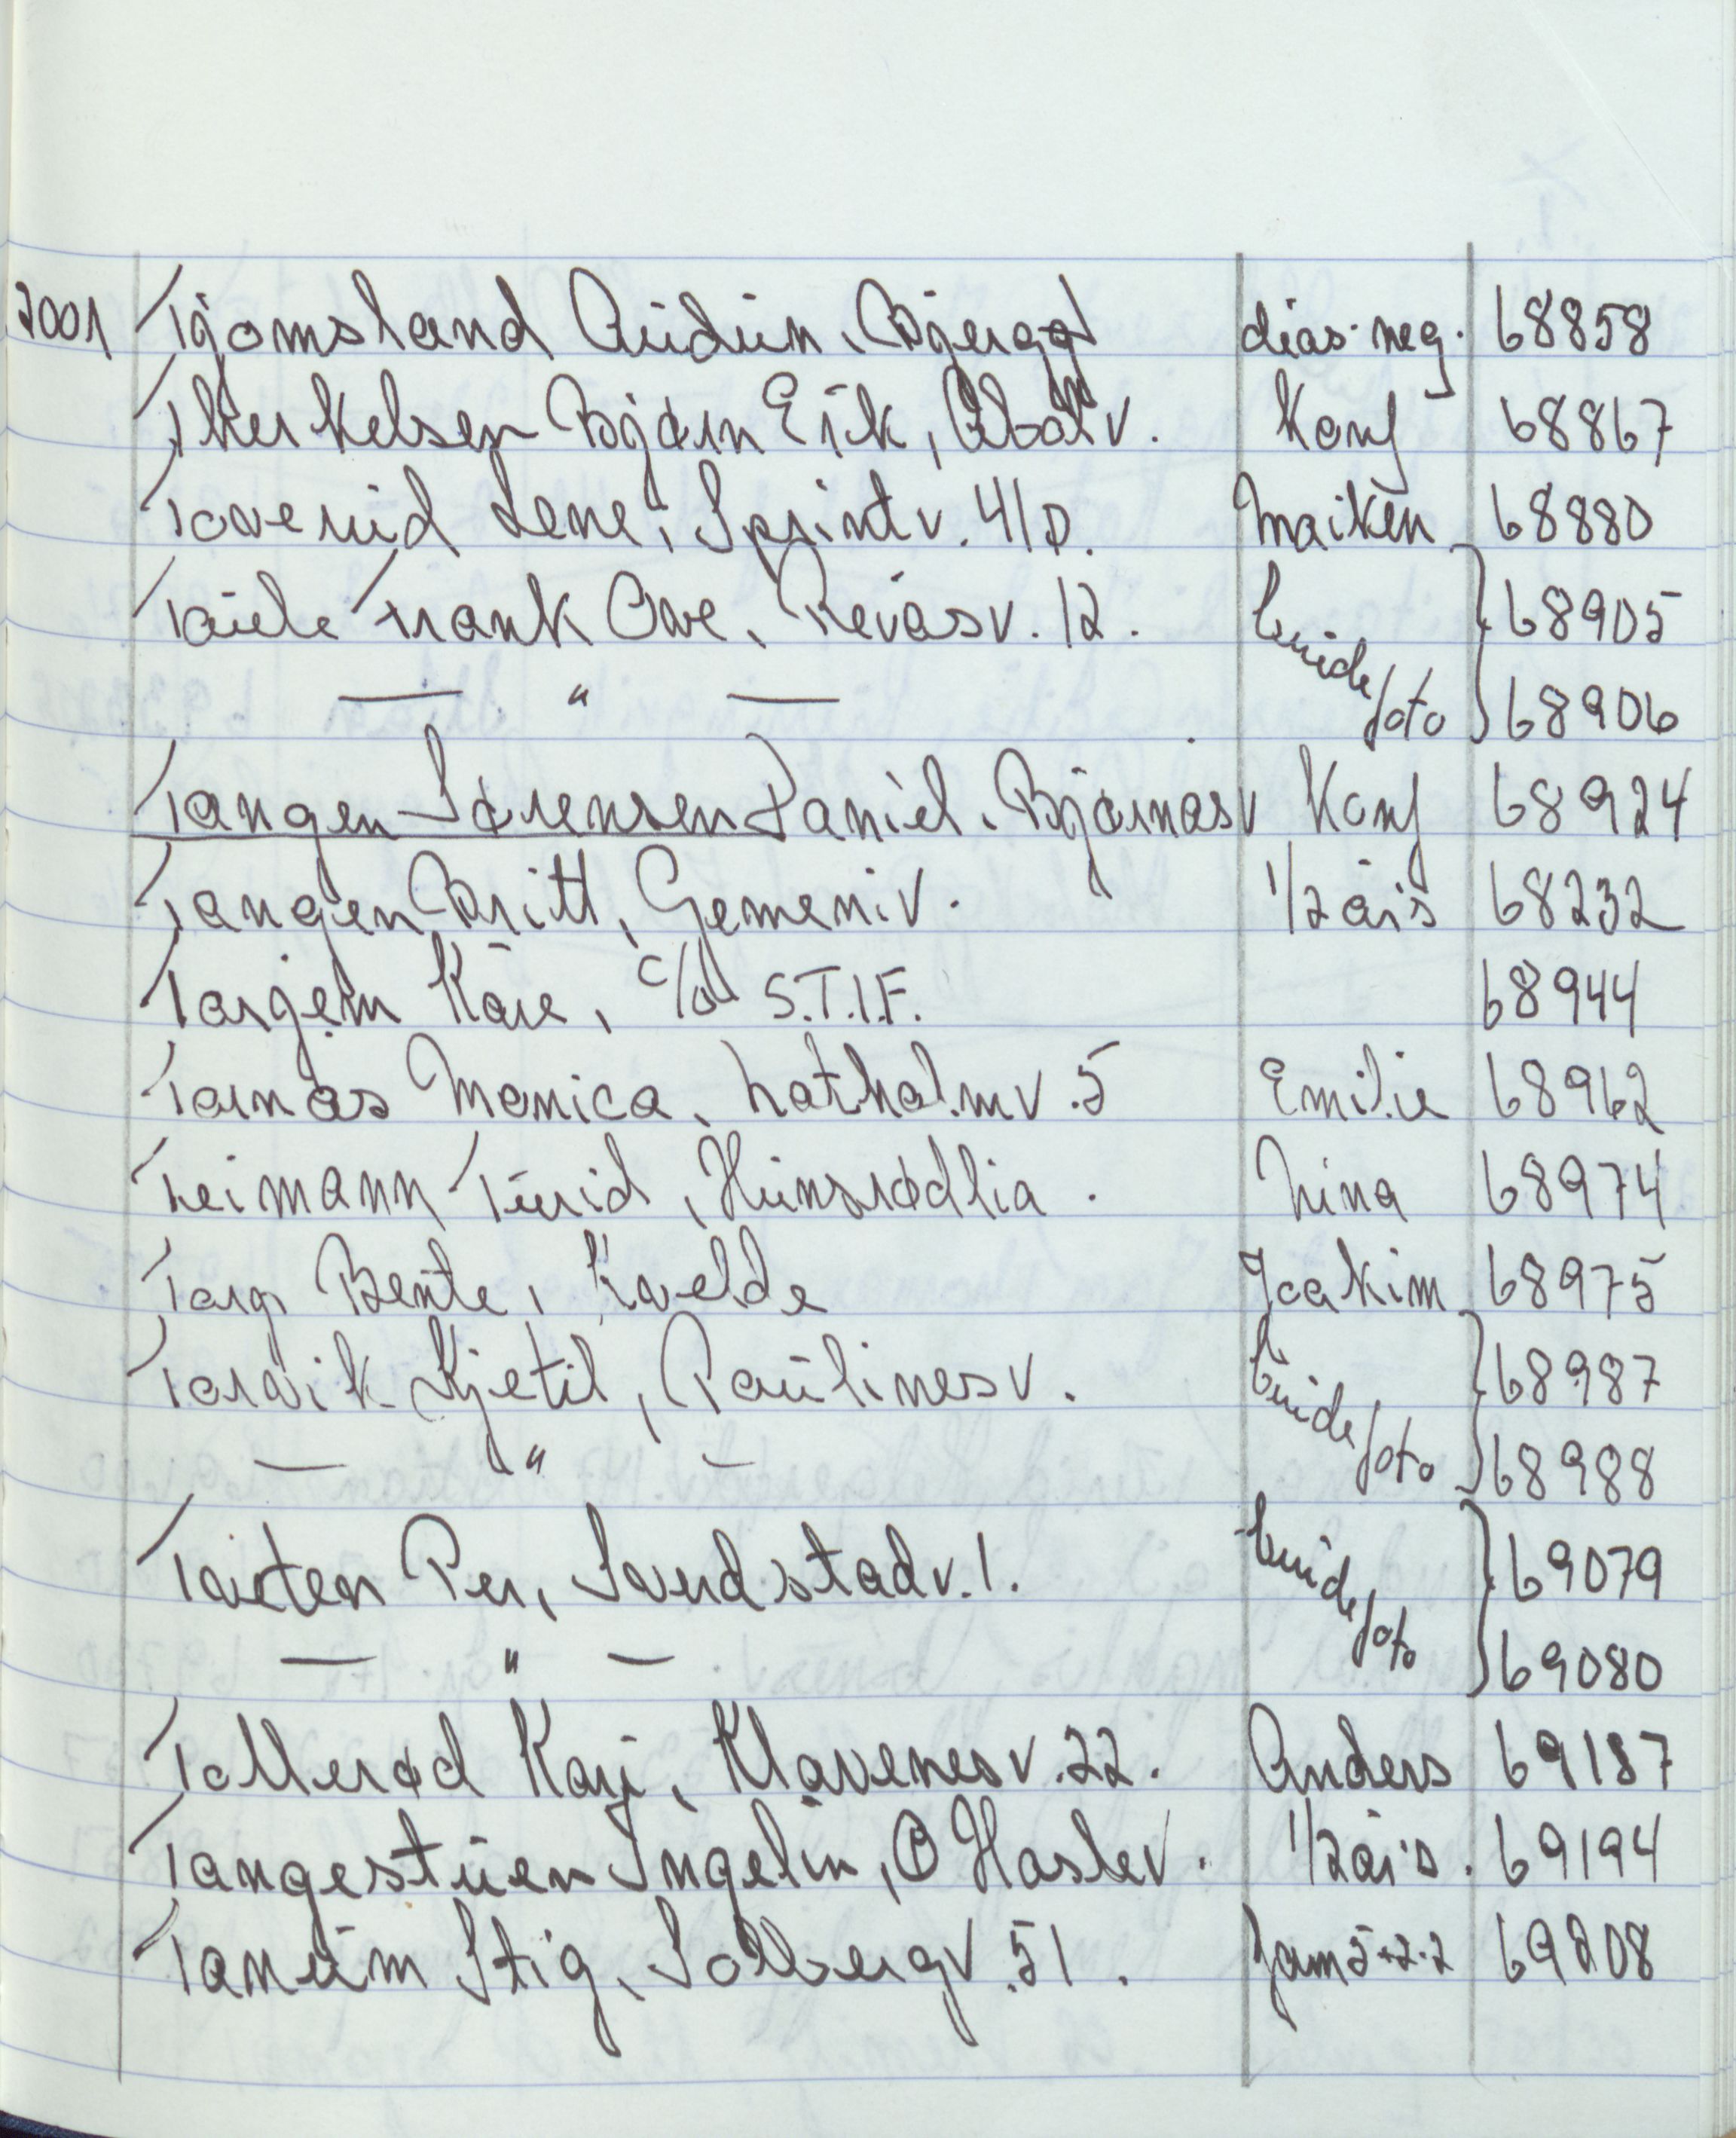 2001 Tjomsland Audun, Bjergg dias-neg. 68858
Therkelsen Bjørn Eik, Abolv. Konf 68867
Toverud Lene, Sprintv. 41D. Maiken 68880
Taule Frank Ove, Revåsv. 12. brude 68905
— " — foto 68906
Tangen-Sørensen Daniel, Bjørnåsv Konf 68924
Tangen Britt, Gemeniv. 1/2 års 68232
Torgem Kåre, c/o S.T.I.F. 68944
Tornås Monica, Loftholmv. 5 Emilie 68962
Treimann Turid, Hunsrødlia. Nina 68974
Torp Bente, Kvelde Joakim 68975
Torvik Kjetil, Paulinesv. brude 68987
— " — foto 68988
Tveten Per, Sverdstadv. 1. brude 69079
— " — foto 69080
Tollerød Kari, Klavenesv. 22. Anders 69187
Tangestuen Ingelin, Ø Haslev. 1/2 års. 69194
Tanum Stig, Solbergv. 51. fam 5+2+2 69208